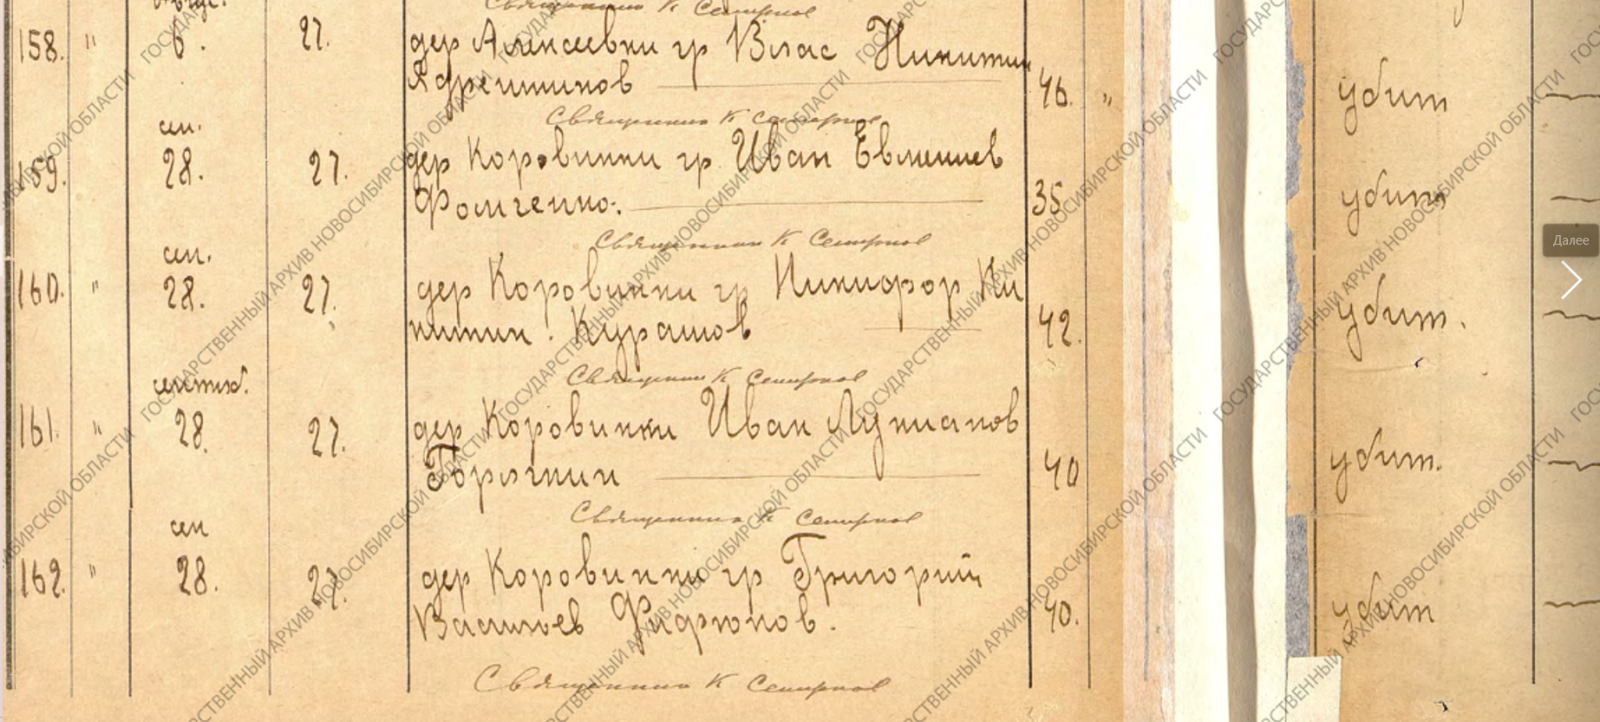 Священник К Семирнов
158. " 6. 27. дер Алексеевки гр Влас Никитин
46. " убит
Священник К Семирнов
сен.
159. 28. 27. дер Коровинки гр Иван Евмениев
Фомченко. 35 убит
Священник К Семирнов
сен.
160. " 28. 27. дер Коровинки гр Никифор Ни
китин. Курашов 42. убит.
Священник К Семирнов
161. " 28. 27. дер Коровинки Иван Лукианов
40 убит.
Священник К Семирнов
сен
162. " 28. 27. дер Коровинки гр Григорий
Васильев 40. убит
Священник К Семирнов
Далее
ГОСУДАРСТВЕННЫЙ АРХИВ НОВОСИБИРСКОЙ ОБЛАСТИ